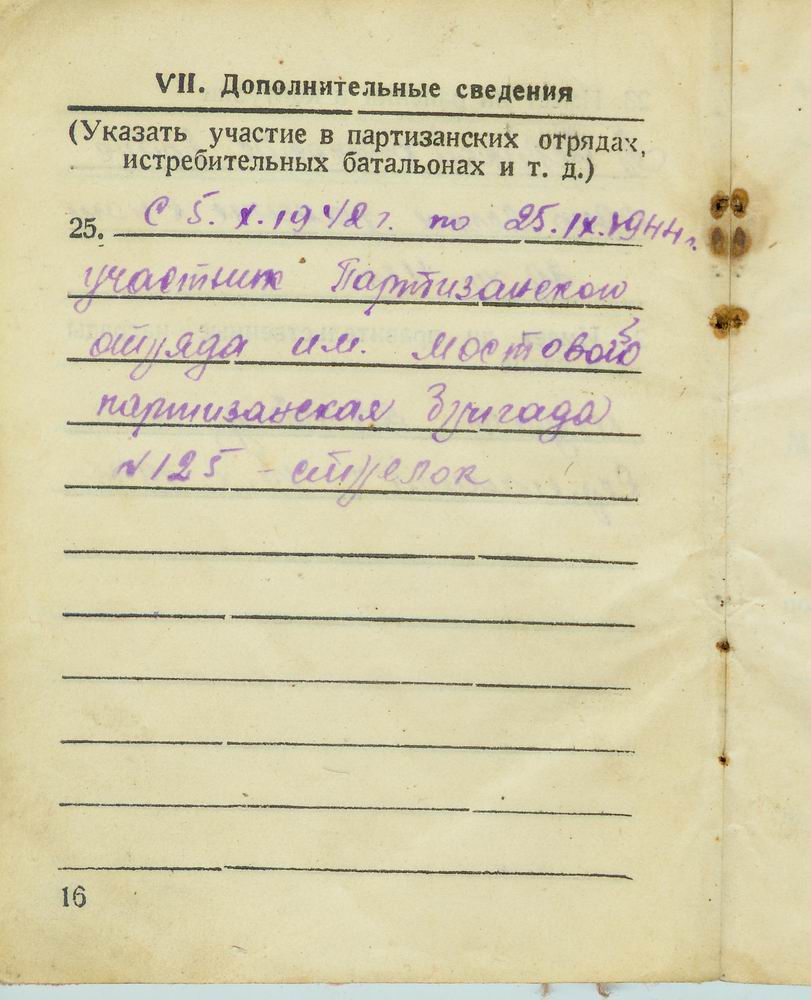 VII. Дополнительные сведения
(Указать участие в партизанских отрядах,
истребительных батальонах и т. д.)
25. С 5. X. 1942 г. по 25. IX. 1944 г.
участник Партизанского
отряда им. Мостового
партизанская бригада
№ 125 - стрелок
16